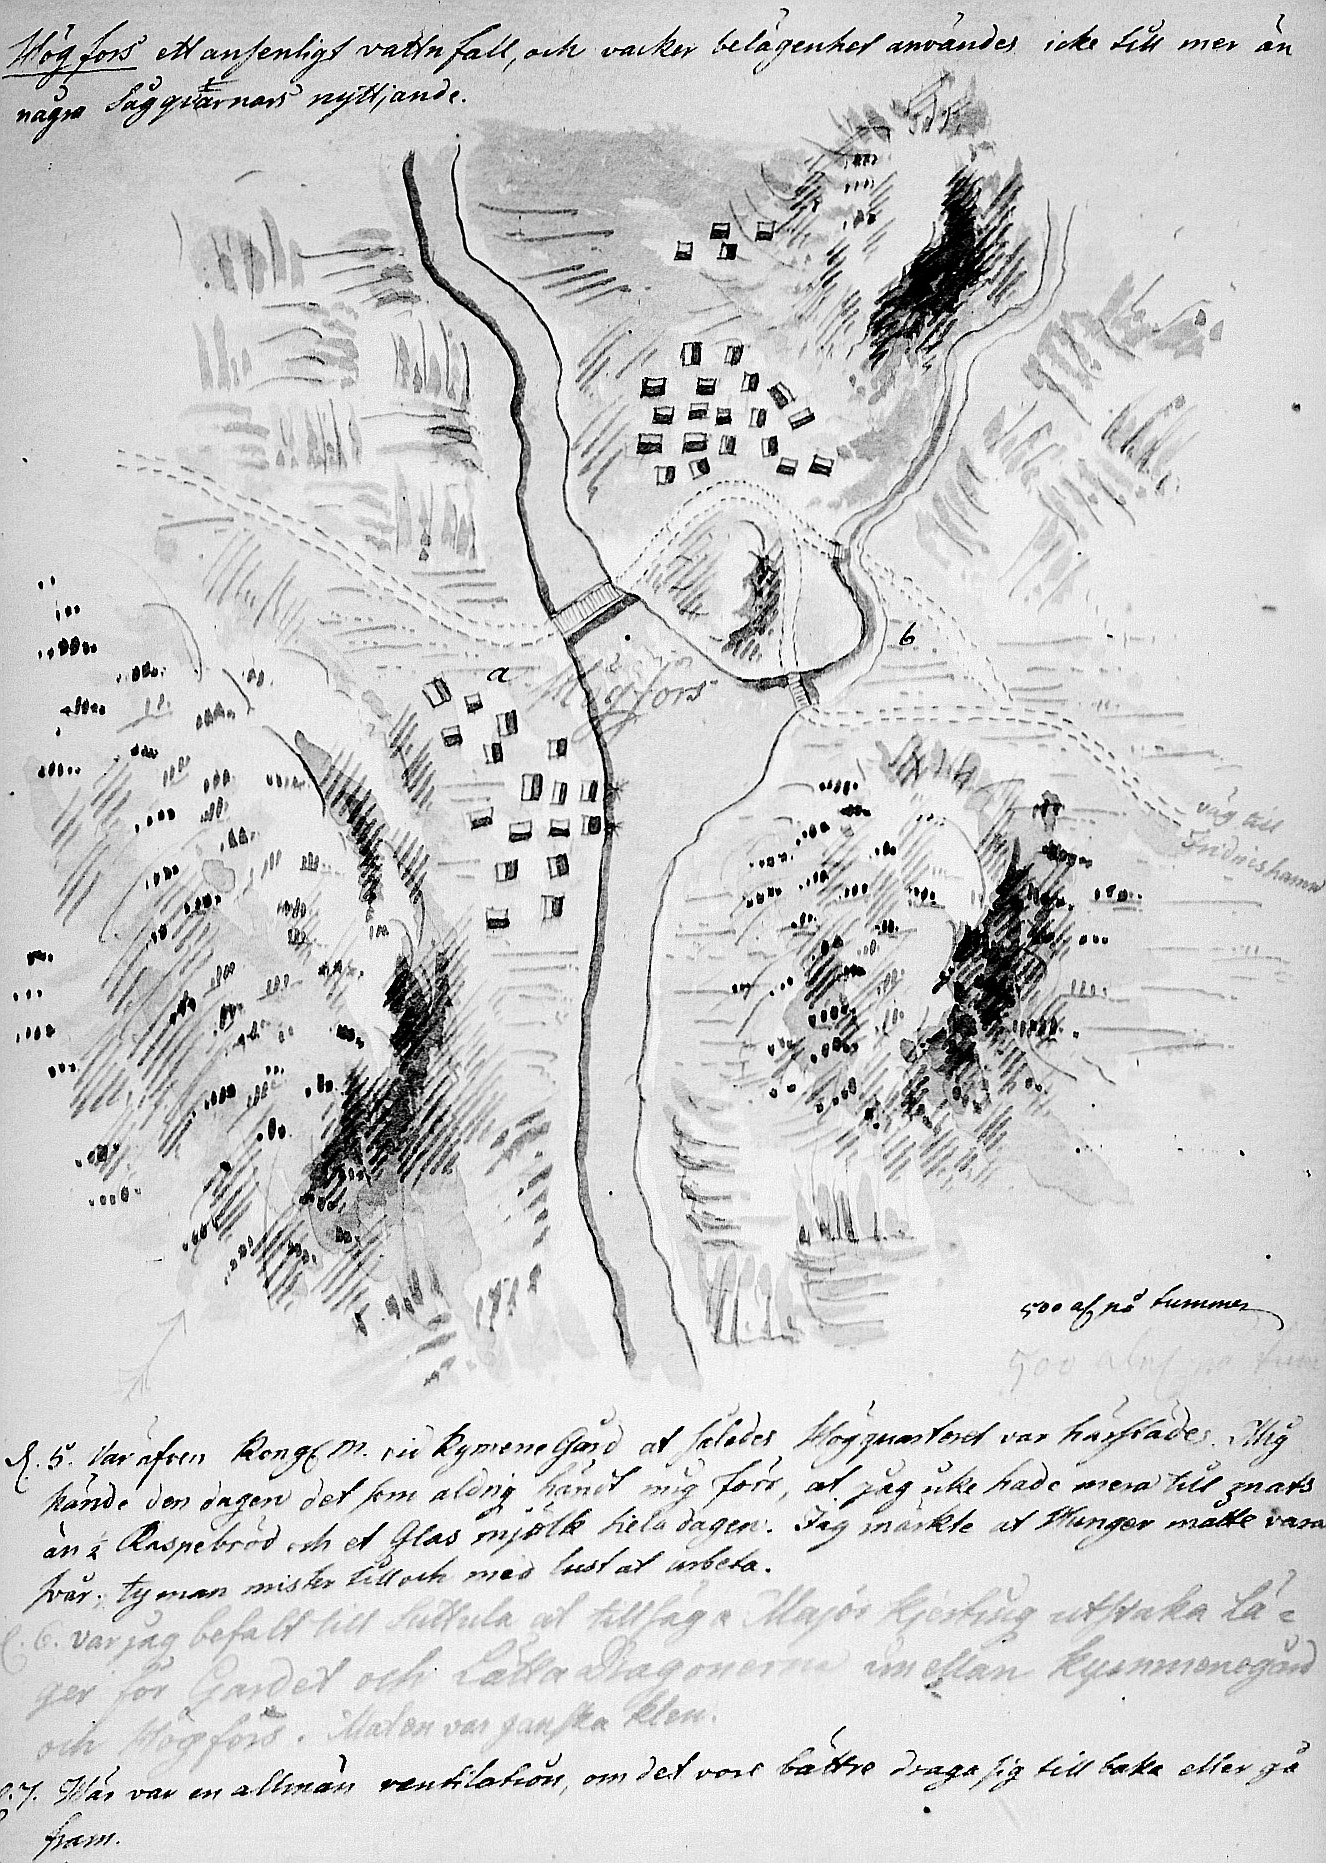 Högfors ett ansenligt vattnfall, och vacker belägenhet användes icke till mer än
några Sågqvarnars nyttjande.
a
Högfors
b
väg till
Fridricshamn
500 aln på tummen
500 aln på tum
d. 5. var äfven Kongl M. vid Kymene Gård at således Högquarteret var härstädes. Mig
hände den dagen det som aldrig händt mig förr, at jag icke hade mera till
än ½ Raspebröd och et Glas mjölk hela dagen. Jag märkte at Hunger måtte vara
svår, ty man mister till och med lust at arbeta.
d. 6. var jag befalt till Suttula at tillsäga Major utstaka Lä=
ger för Gardet och Lätta Dragonerna imellan Kymmenegård
och Högfors. Maten var ganska klen.
d. 7. Här var en allmän ventilation, om det vore bättre draga sig till baka eller gå
fram.